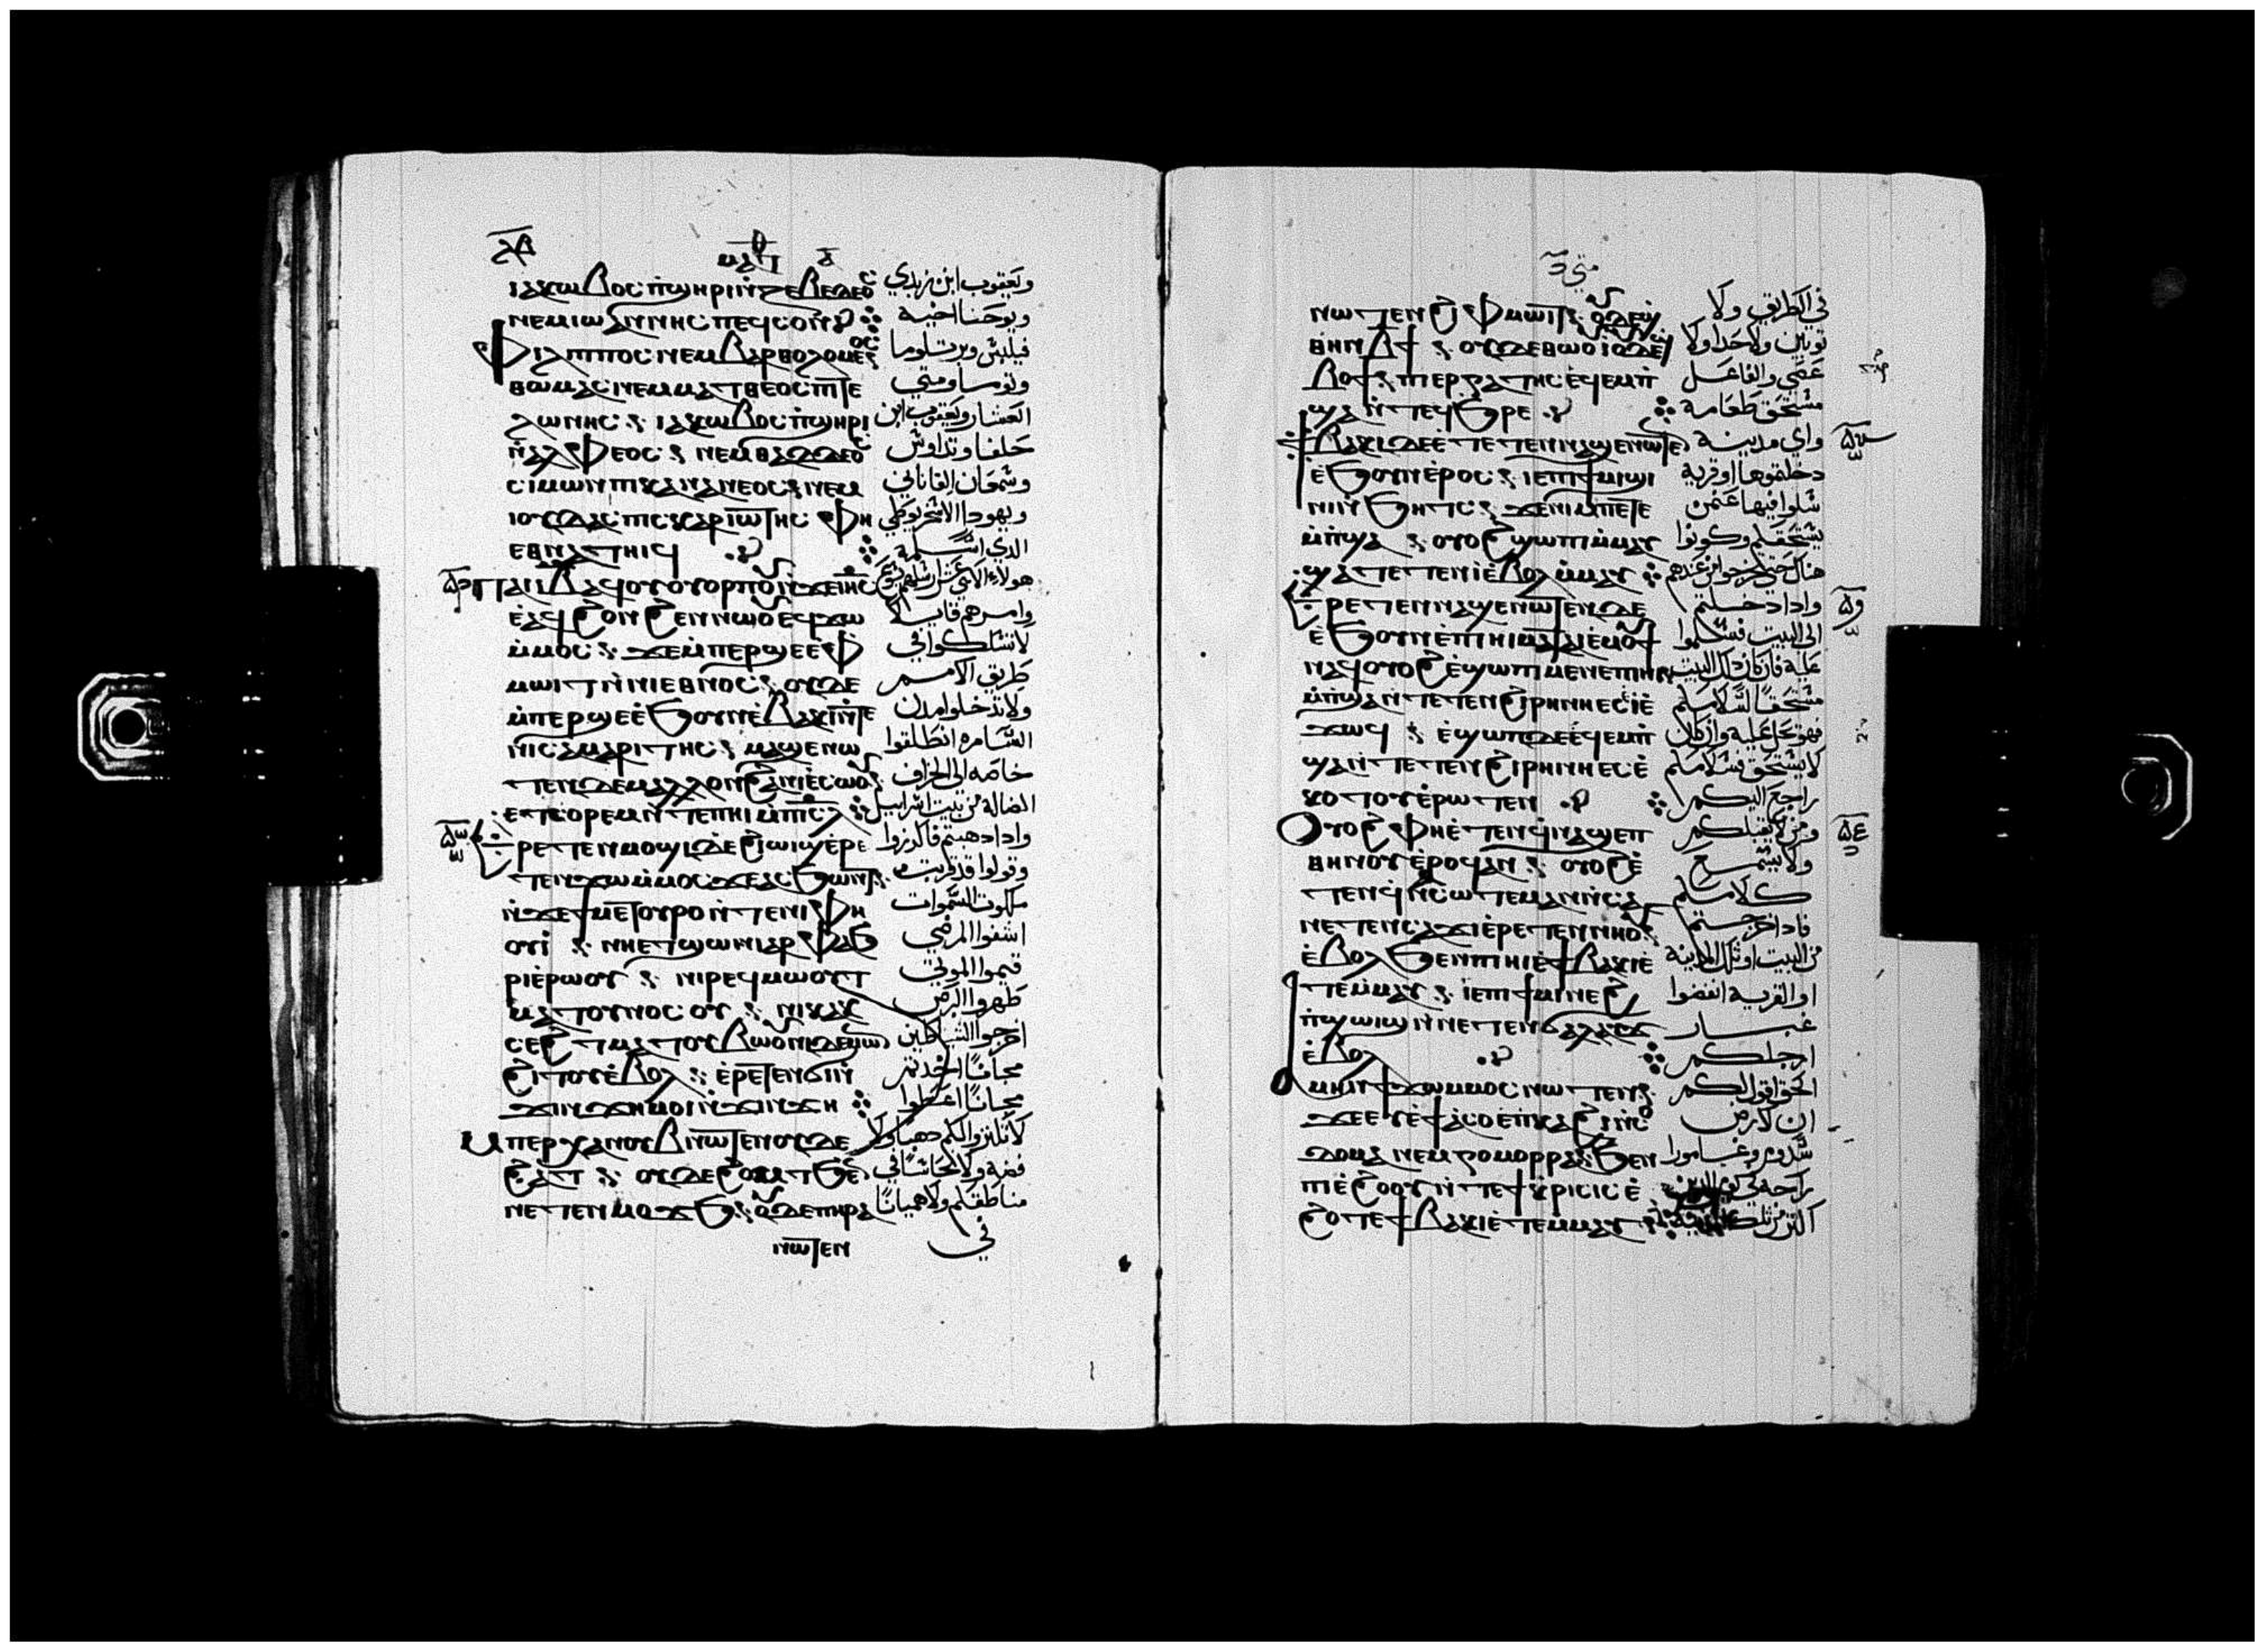 ⲙⲁⲧ
ⲓⲁⲕⲱⲃⲟⲥ ⲡϣⲏⲣⲓ ⲛ̀ⲍⲉⲃⲉⲇⲉⲟⲥ
ⲛⲉⲙ ⲓⲱⲁⲛⲛⲏⲥ ⲡⲉϥⲥⲟⲛ
ⲫⲓⲗⲓⲡⲡⲟⲥ ⲛⲉⲙ ⲃⲁⲣⲑⲟⲗⲟⲙⲉⲟⲥ
ⲑⲱⲙⲁⲥ ⲛⲉⲙ ⲙⲁⲧⲑⲉⲟⲥ ⲡⲓⲧⲉ
ⲗⲱⲛⲏⲥ ⁘ ⲓⲁⲕⲱⲃⲟⲥ ⲡ̀ϣⲏⲣⲓ
ⲛ̀ⲁⲗⲫⲉⲟⲥ ⁘ ⲛⲉⲙ ⲑⲁⲇⲇⲉⲟⲥ
ⲥⲓⲙⲱⲛ ⲡⲓⲕⲁⲛⲁⲛⲉⲟⲥ ⁘ ⲛⲉⲙ
ⲓⲟⲩⲇⲁⲥ ⲡⲓⲥⲕⲁⲣⲓⲱⲧⲏⲥ ⲫⲏ
ⲉⲑⲛⲁⲧⲏⲓϥ
ⲡⲁⲓⲓⲃ ⲁϥⲟⲩⲟⲣⲡⲟⲩ ⲛ̀ϫⲉ ⲓⲏⲥ
ⲉ̀ⲁϥϩⲟⲛϩⲉⲛ ⲛⲱⲟⲩ ⲉϥϫⲱ
ⲙ̀ⲙⲟⲥ ⁘ ϫⲉ ⲙ̀ⲡⲉⲣϣⲉ ⲉⲫ
ⲙⲱⲓⲧ ⲛ̀ⲛⲓⲉⲑⲛⲟⲥ ⁘ ⲟⲩⲇⲉ
ⲙ̀ⲡⲉⲣϣⲉ ⲉ̀ϧⲟⲩⲛ ⲉ̀ⲃⲁⲕⲓ ⲛ̀ⲧⲉ
ⲛⲓⲥⲁⲙⲁⲣⲓⲧⲏⲥ ⁘ ⲙⲁϣⲉ ⲛⲱ
ⲧⲉⲛ ⲇⲉ ⲙⲁⲗⲗⲟⲛ ϩⲁ ⲛⲓⲉ̀ⲥⲱⲟⲩ
ⲉⲧⲥⲟⲣⲉⲙ ⲛ̀ⲧⲉ ⲡⲏⲓ ⲙ̀ⲡⲓⲥⲗ
ⲉⲣⲉⲧⲉⲛⲙⲟϣⲓ ⲇⲉ ϩⲓⲱⲓϣ ⲉ̀ⲣⲉ
ⲧⲉⲛϫⲱ ⲙ̀ⲙⲟⲥ ϫⲉ ⲁⲥϧⲱⲛⲧ ⁘
ⲛ̀ϫⲉ ϯⲙⲉⲧⲟⲩⲣⲟ ⲛ̀ⲧⲉ ⲛⲓⲫⲏ
ⲟⲩⲓ̀ ⁘ ⲛⲏⲉⲧϣⲱⲛⲓ ⲁⲣⲓⲫⲁϧ
ⲣⲓ ⲉ̀ⲣⲱⲟⲩ ⁘ ⲛⲓⲣⲉϥⲙⲱⲟⲩⲧ
ⲙⲁⲧⲟⲩⲛⲟⲥⲟⲩ ⁘ ⲛⲓⲕⲁⲕ
ⲥⲉϩⲧ ⲙⲁⲧⲟⲩⲃⲱⲟⲩ ⲛⲓⲇⲉⲙⲱⲛ
ϩⲓⲧⲟⲩ ⲉ̀ⲃⲟⲗ ⁘ ⲉ̀ⲣⲉⲧⲉⲛϭⲓ ⲛ̀
ϫⲓⲛϫⲏ ⲙⲟⲓ ⲛ̀ϫⲓⲛϫⲏ
ⲙⲡⲉⲣⲭⲁ ⲛⲟⲩⲃ ⲛⲱⲧⲉⲛ ⲟⲩⲇⲉ
ϩⲁⲧ ⁘ ⲟⲩⲇⲉ ϩⲟⲙⲧ ϧⲉⲛ
ⲛⲉⲧⲉⲛⲙⲟϫϧ ⁘ ⲟⲩⲇⲉ ⲡⲏⲣⲁ
ⲛⲱⲧⲉⲛ
ويعقوب ابن زبدي
ويوحنا اخيه
فيلبس وبرتلوما
وتوما ومتي
العشار ويعقوب ابن
حلفا وتداوس
وسمعان القاناني
ويهودا الاسخريوطي
الدي اسلمه
وامرهم قايلا
لا تسلكوا في
طريق الامم
ولا تدخلوا مدن
السامره انطلقوا
خاصه الي الخراف
الضاله من بيت اسراييل
وادا دهبتم فاكرزوا
وقولوا قد قربت
ملكوت السموات
اشفوا المرضي
قيموا الموتي
طهروا البرص
اخرجوا الشياطين
مجانًا اخدتم
مجانًا اعطوا
لا تكنزوا لكم دهبًا ولا
فضه ولا نحاسًا في
مناطقكم ولا هميانًا
في
متي
ⲛⲱⲧⲉⲛ ϩⲓ ⲫⲙⲱⲓⲧ ⁘ ⲟⲩⲇⲉ
ⲑⲏⲛ ⲃϯ ⁘ ⲟⲩⲇⲉ ⲑⲱⲟⲩⲓ ⲟⲩⲇⲉ
ϣⲃⲟϯ ⁘ ⲡⲓⲉⲣⲅⲁⲧⲏⲥ ϥⲉⲙⲡ
ϣⲁ ⲛ̀ⲧⲉϥϧⲣⲉ
ϯⲃⲁⲕⲓ ⲇⲉ ⲉ̀ⲧⲉⲧⲉⲛⲛⲁϣⲉ ⲛⲱⲧⲉⲛ
ⲉ̀ϧⲟⲩⲛ ⲉ̀ⲣⲟⲥ ⁘ ⲓⲉ ⲡⲓϯⲙⲓ ϣⲓ
ⲛⲓ ⲛ̀ϧⲏⲧⲥ ⁘ ϫⲉ ⲛⲓⲙ ⲡⲉⲧⲉ
ⲙ̀ⲡϣⲁ ⁘ ⲟⲩⲟϩ ϣⲱⲡⲓ ⲙ̀ⲙⲁⲩ
ϣⲁⲧⲉⲧⲉⲛⲓ̀ ⲉ̀ⲃⲟⲗ ⲙ̀ⲙⲁⲩ
ⲉⲣⲉⲧⲉⲛⲛⲁϣⲉ ⲛⲱⲧⲉⲛ ⲇⲉ
ⲉ̀ϧⲟⲩⲛ ⲉ̀ⲡⲓⲏⲓ ⲙⲁⲁⲥⲡⲁⲍⲉⲥⲑⲉ
ⲛⲁϥ ⲟⲩⲟϩ ⲉ̀ϣⲱⲡ ⲙⲉⲛ ⲉⲡⲓⲏⲓ
ⲙ̀ⲡϣⲁ ⲛ̀ⲧⲉⲧⲉⲛϩⲓⲣⲏⲛⲏ ⲉⲥⲓ̀ ⲉ̀
ϫⲱϥ ⁘ ⲉ̀ϣⲱⲡ ⲇⲉ ϥⲉⲙⲡ
ϣⲁ ⲛ̀ⲧⲉⲧⲉⲛϩⲓⲣⲏⲛⲏ ⲉⲥⲉ̀
ⲕⲟⲧⲟⲩ ⲉ̀ⲣⲱⲧⲉⲛ
ⲟⲩⲟϩ ⲫⲏⲉ̀ⲧⲉⲛϥⲛⲁϣⲉⲡ
ⲑⲏⲛⲟⲩ ⲉ̀ⲣⲟϥ ⲁⲛ ⁘ ⲟⲩⲟϩ ⲉ̀
ⲧⲉⲛϥⲛ̀ⲥⲱⲧⲉⲙ ⲁⲛ ⲛ̀ⲥⲁ
ⲛⲉⲧⲉⲛⲥⲁϫⲓ ⲉ̀ⲣⲉⲧⲉⲛⲛⲏⲟⲩ
ⲉ̀ⲃⲟⲗ ϧⲉⲛ ⲡⲓⲏⲓ ⲓⲉ ϯⲃⲁⲕⲓ ⲉ̀
ⲧⲉⲙ̀ⲙⲁⲩ ⁘ ⲓⲉ ⲡⲓϯⲙⲓ ⲛⲉϩ
ⲡ̀ϣⲱⲓϣ ⲛ̀ⲛⲉⲧⲉⲛϭⲁⲗⲁⲩϫ
ⲉ̀ⲃⲟⲗ
ⲁⲙⲏⲛ ϯϫⲱ ⲙⲙⲟⲥ ⲛⲱⲧⲉⲛ ⁘
ϫⲉ ⲉⲩⲉ̀ϯⲁ̀ⲥⲟ ⲉ̀ⲡⲕⲁϩⲓ ⲛ̀ⲥⲟ
ⲇⲟⲙⲁ ⲛⲉⲙ ⲅⲟⲙⲟⲣⲣⲁ ⁘ ϧⲉⲛ
ⲡⲓⲉ̀ϩⲟⲟⲩ ⲛ̀ⲧⲉ ϯⲕⲣⲓⲥⲓⲥ ⲉ̀
ϩⲟⲧⲉ ϯⲃⲁⲕⲓ ⲉ̀ⲧⲉⲙⲙⲁⲩ
في الطريق ولا
توبين ولا حدا ولا
عصي والفاعل
مستحق طعامه
واي مدينه
دخلتموها او قريه
سلوا فيها عن من
يستحقكم وكونوا
هناك حتي تخرجوا من عندهم
وادا دخلتم
الي البيت فسلموا
عليه فان كان دلك البيت
مستحقًا لسلامكم
فهو يحل عليه وان كان
لا يستحق سلامكم
راجع اليكم
ومن لا يقبلكم
ولا يسمع
كلامكم
فادا خرجتم
من البيت او تلك المدينه
او القريه انفضوا
غبار
ارجلكم
الحق اقول لكم
ان لارض
سدوم وغامورا